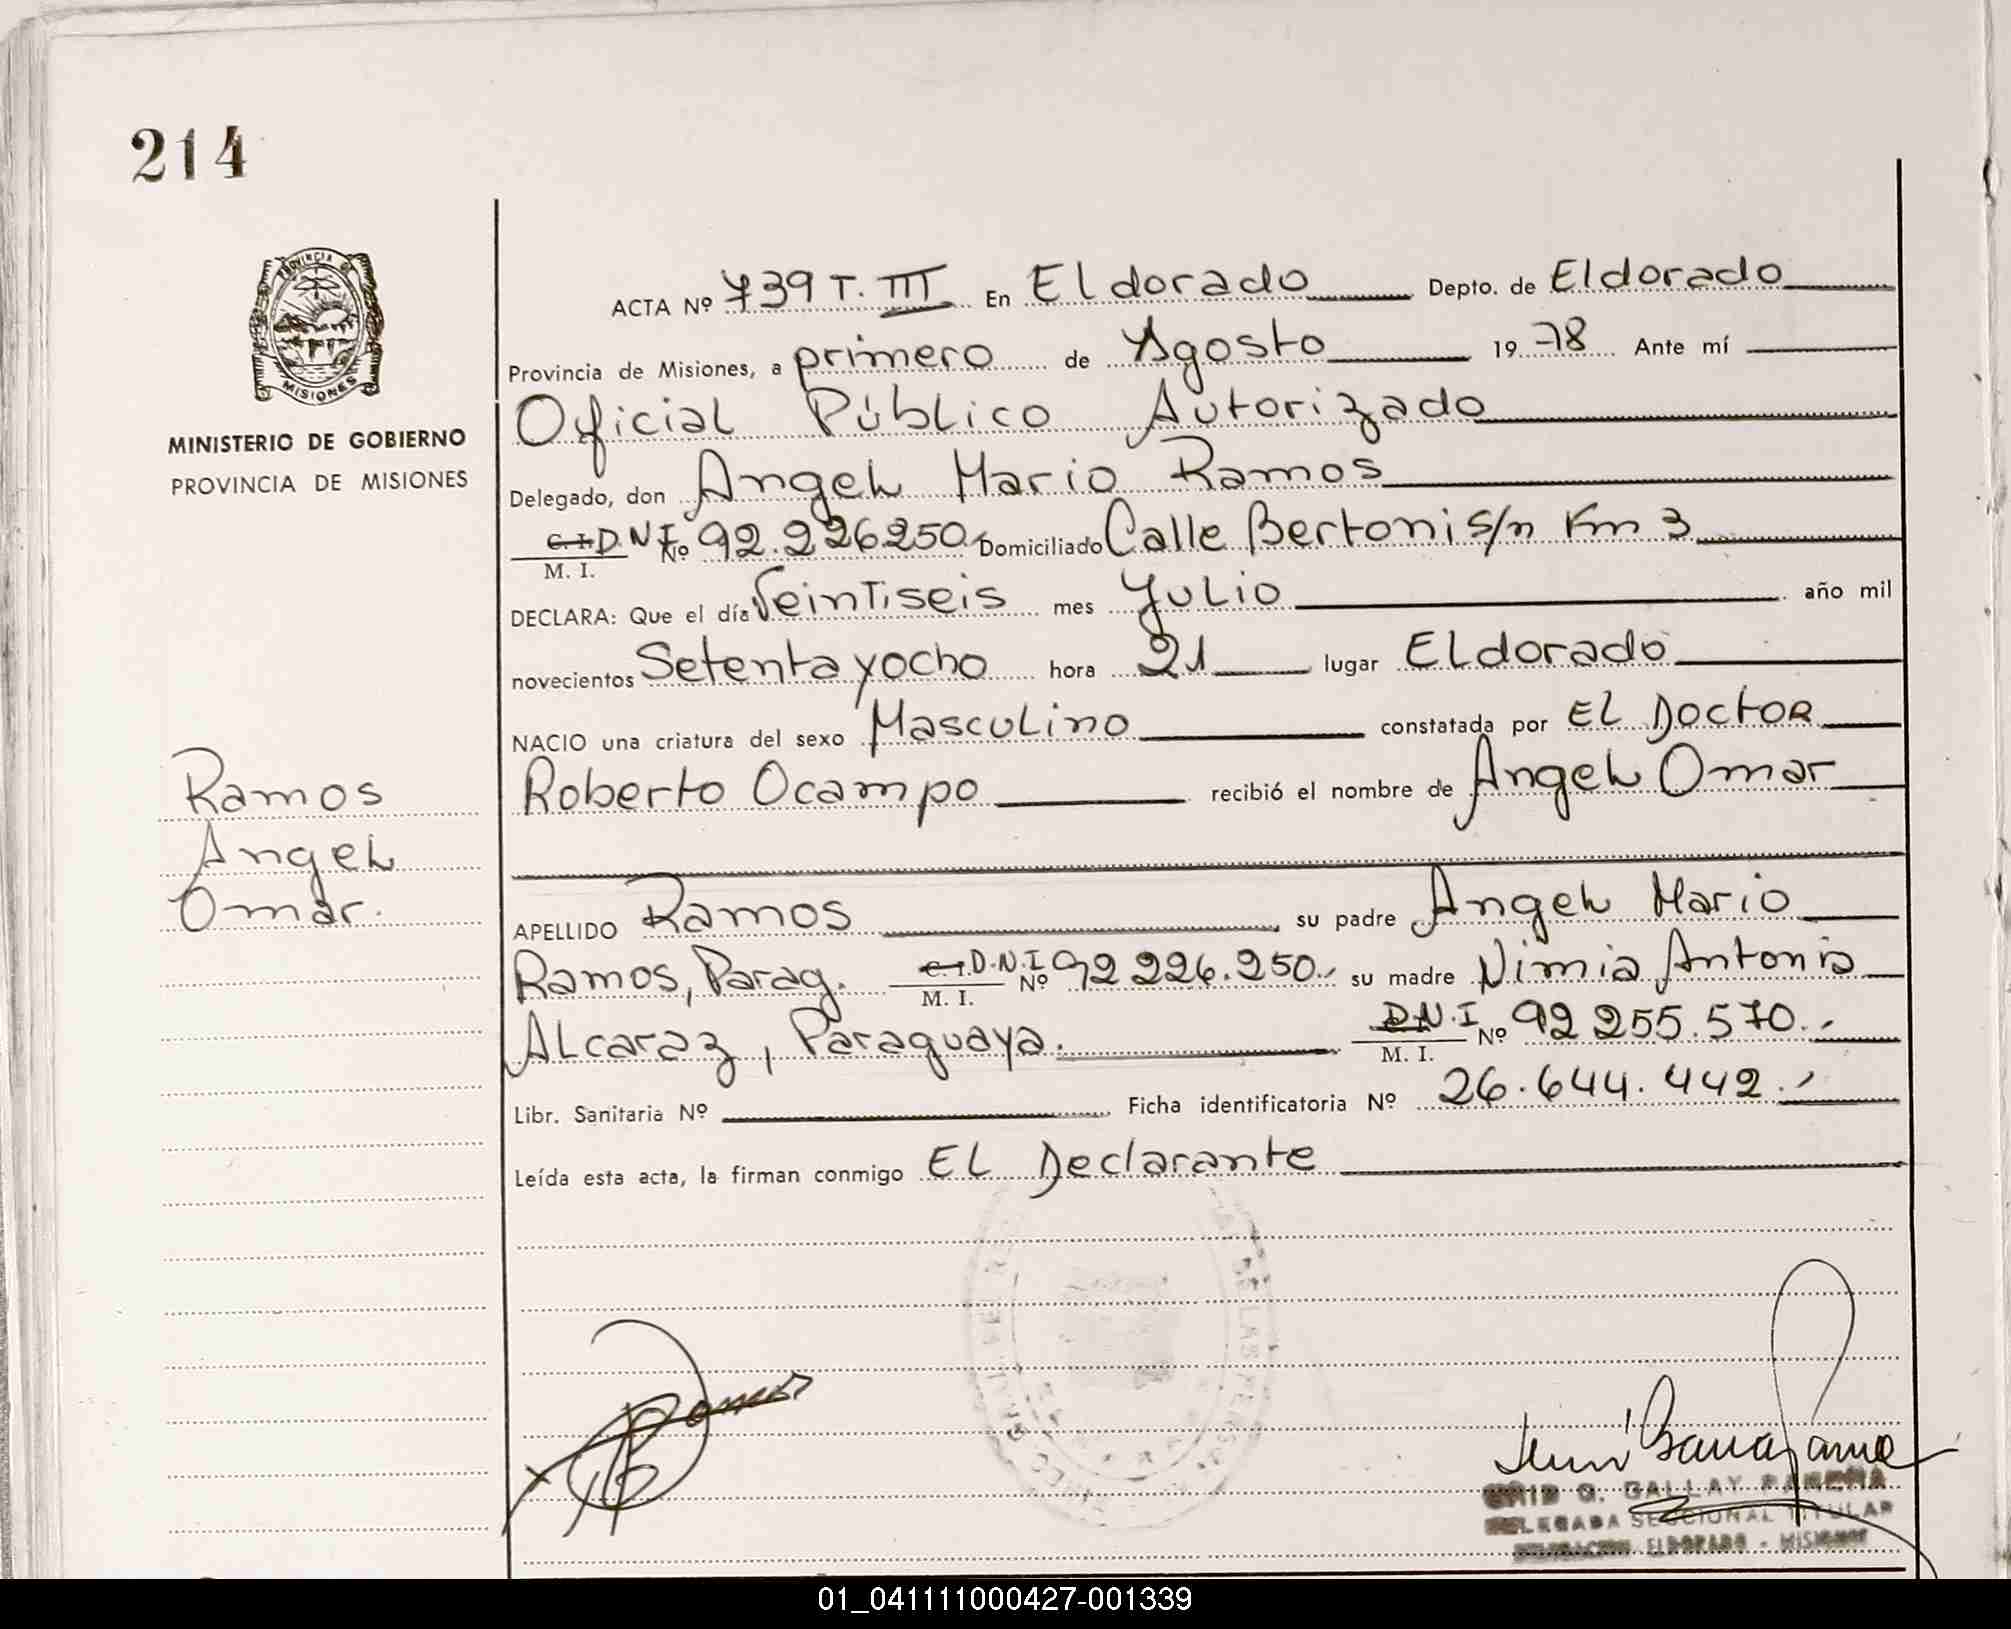 214
PROVINCIA DE
MISIONES
MINISTERIO DE GOBIERNO
PROVINCIA DE MISIONES
Ramos
Angel
Omar.
ACTA Nº 739 T. III En Eldorado Depto. de Eldorado
Provincia de Misiones, a primero de Agosto 19 78 Ante mí
Oficial Público Autorizado
Delegado, don Angel Mario Ramos
C.I. D.N.I. M. I. Nº 92.226250.- Domiciliado Calle Bertoni s/n Km 3
DECLARA: Que el día Veintiseis mes Julio año mil
novecientos Setenta y ocho hora 21 lugar Eldorado
NACIO una criatura del sexo Masculino constatada por El Doctor
Roberto Ocampo recibió el nombre de Angel Omar
APELLIDO Ramos su padre Angel Mario
Ramos, Parag. C.I. D.N.I M. I. Nº 92 226.250.- su madre Nimia Antonia
Alcaraz, Paraguaya. D.N.I M. I. Nº 92 255.570.-
Libr. Sanitaria Nº Ficha identificatoria Nº 26.644.442.-
Leída esta acta, la firman conmigo El Declarante
Ramos
G. GALLAY PAREÑA
DELEGADA SECCIONAL TITULAR
DELEGACION ELDORADO - MISIONES
01_041111000427-001339